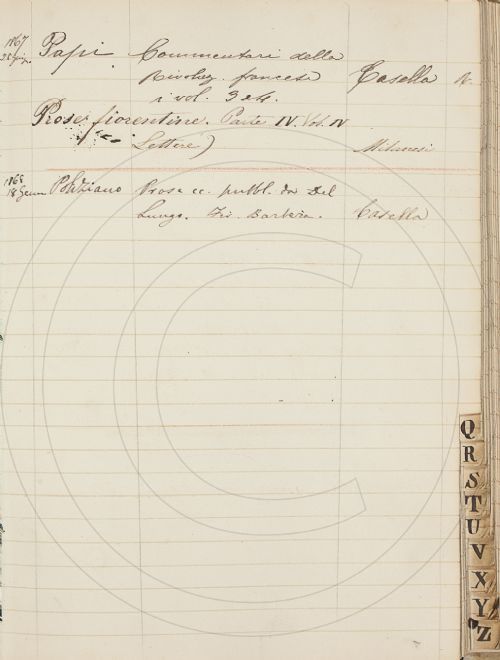 1867
Papi Commentari della
Rivoluz. francese Casella
i vol. 3 e 4.
Prose fiorentine. Parte IV. Vol. IV
Lettere) Milanesi
1868
18 Genn Poliziano Prose ec. pubbl. da Del
Lungo. Fir. Barbèra. Casella
Q
R
S
T
U
V
X
Y
Z